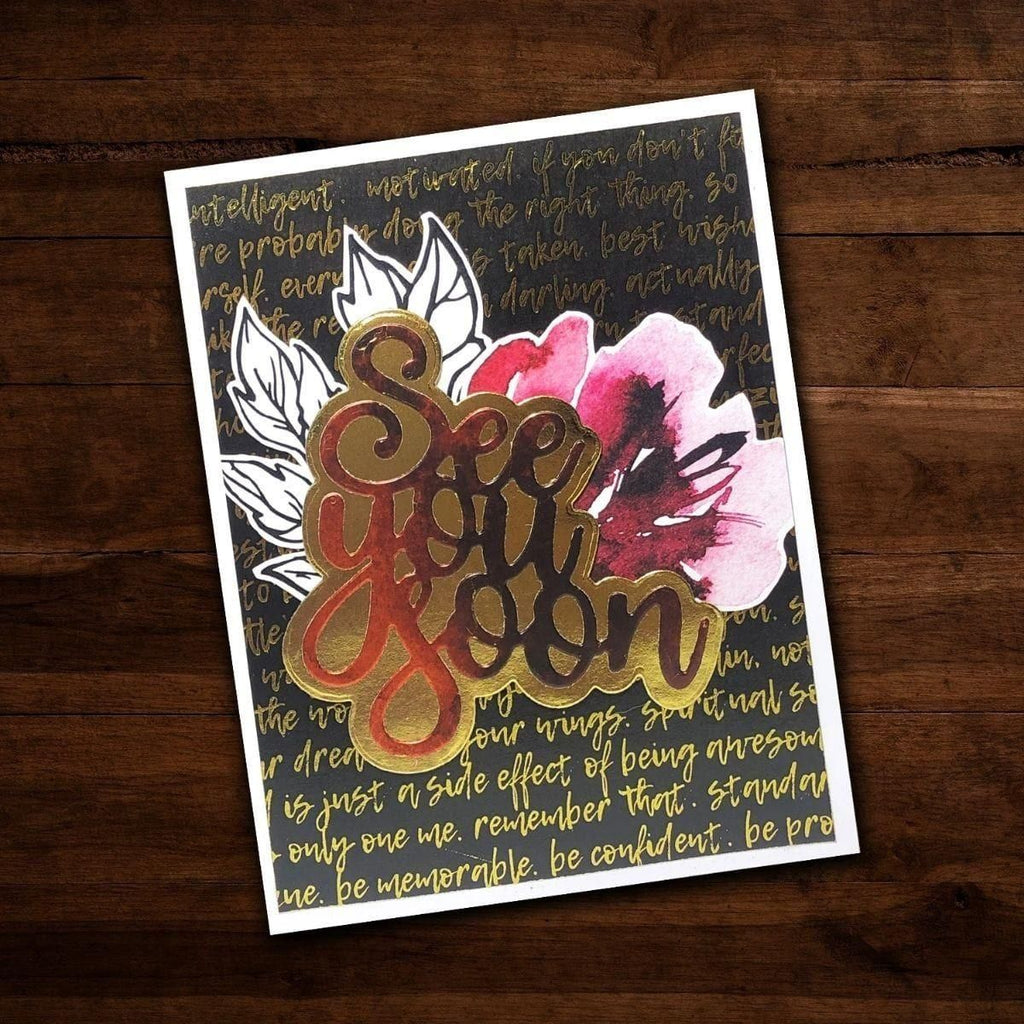 intelligent. motivated. if you don't fit
re probably doing the right thing. so
rself. every is taken. best wish
like the re darling. actually
stand
rfec
See
you
Soon
to
the wo
lin. not
r drea your wings. spiritual so
is just a side effect of being awesom
only one me. remember that. standar
ue. be memorable. be confident. be pro